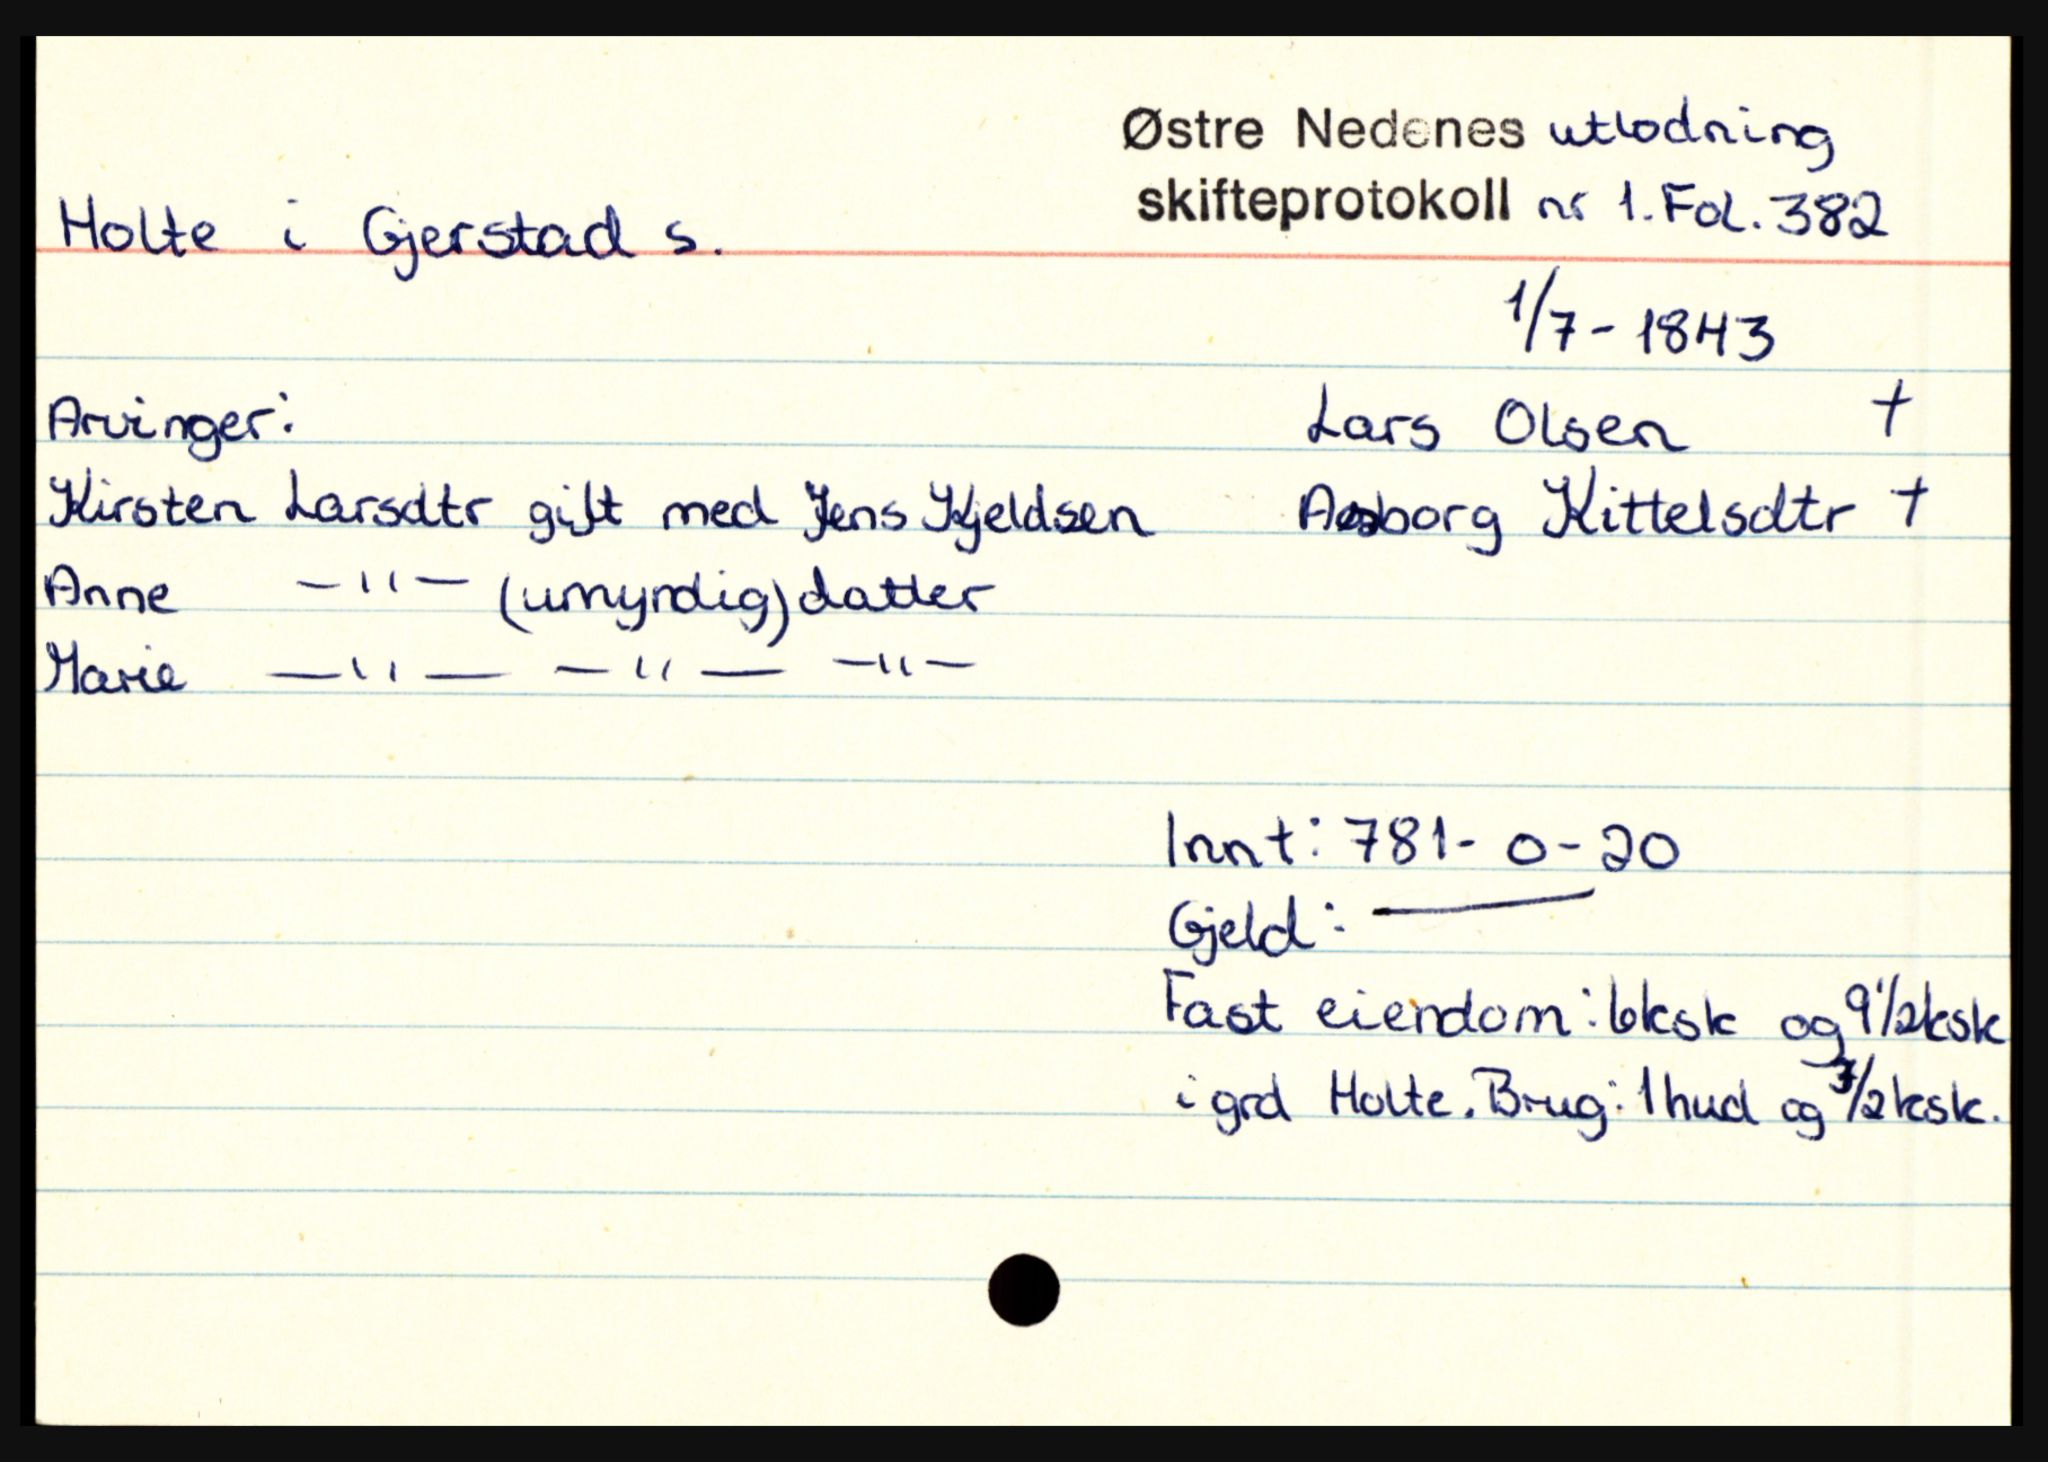 Østre Nedenes utlodning
skifteprotokoll nr 1. Fol. 382
Holte i Gjerstad s.
1/7 - 1843
Arvinger:
Lars Olsen †
Kirsten Larsdtr gift med Jens Kjeldsen
Aasborg Kittelsdtr †
Anne —"— (umyndig) datter
Marie —"— —"— —"—
Innt: 781 - 0 - 20
Gjeld: —
Fast eiendom: 6ksk og 9 1/2ksk
i grd Holte. Brug: 1 hud og 7/2 ksk.